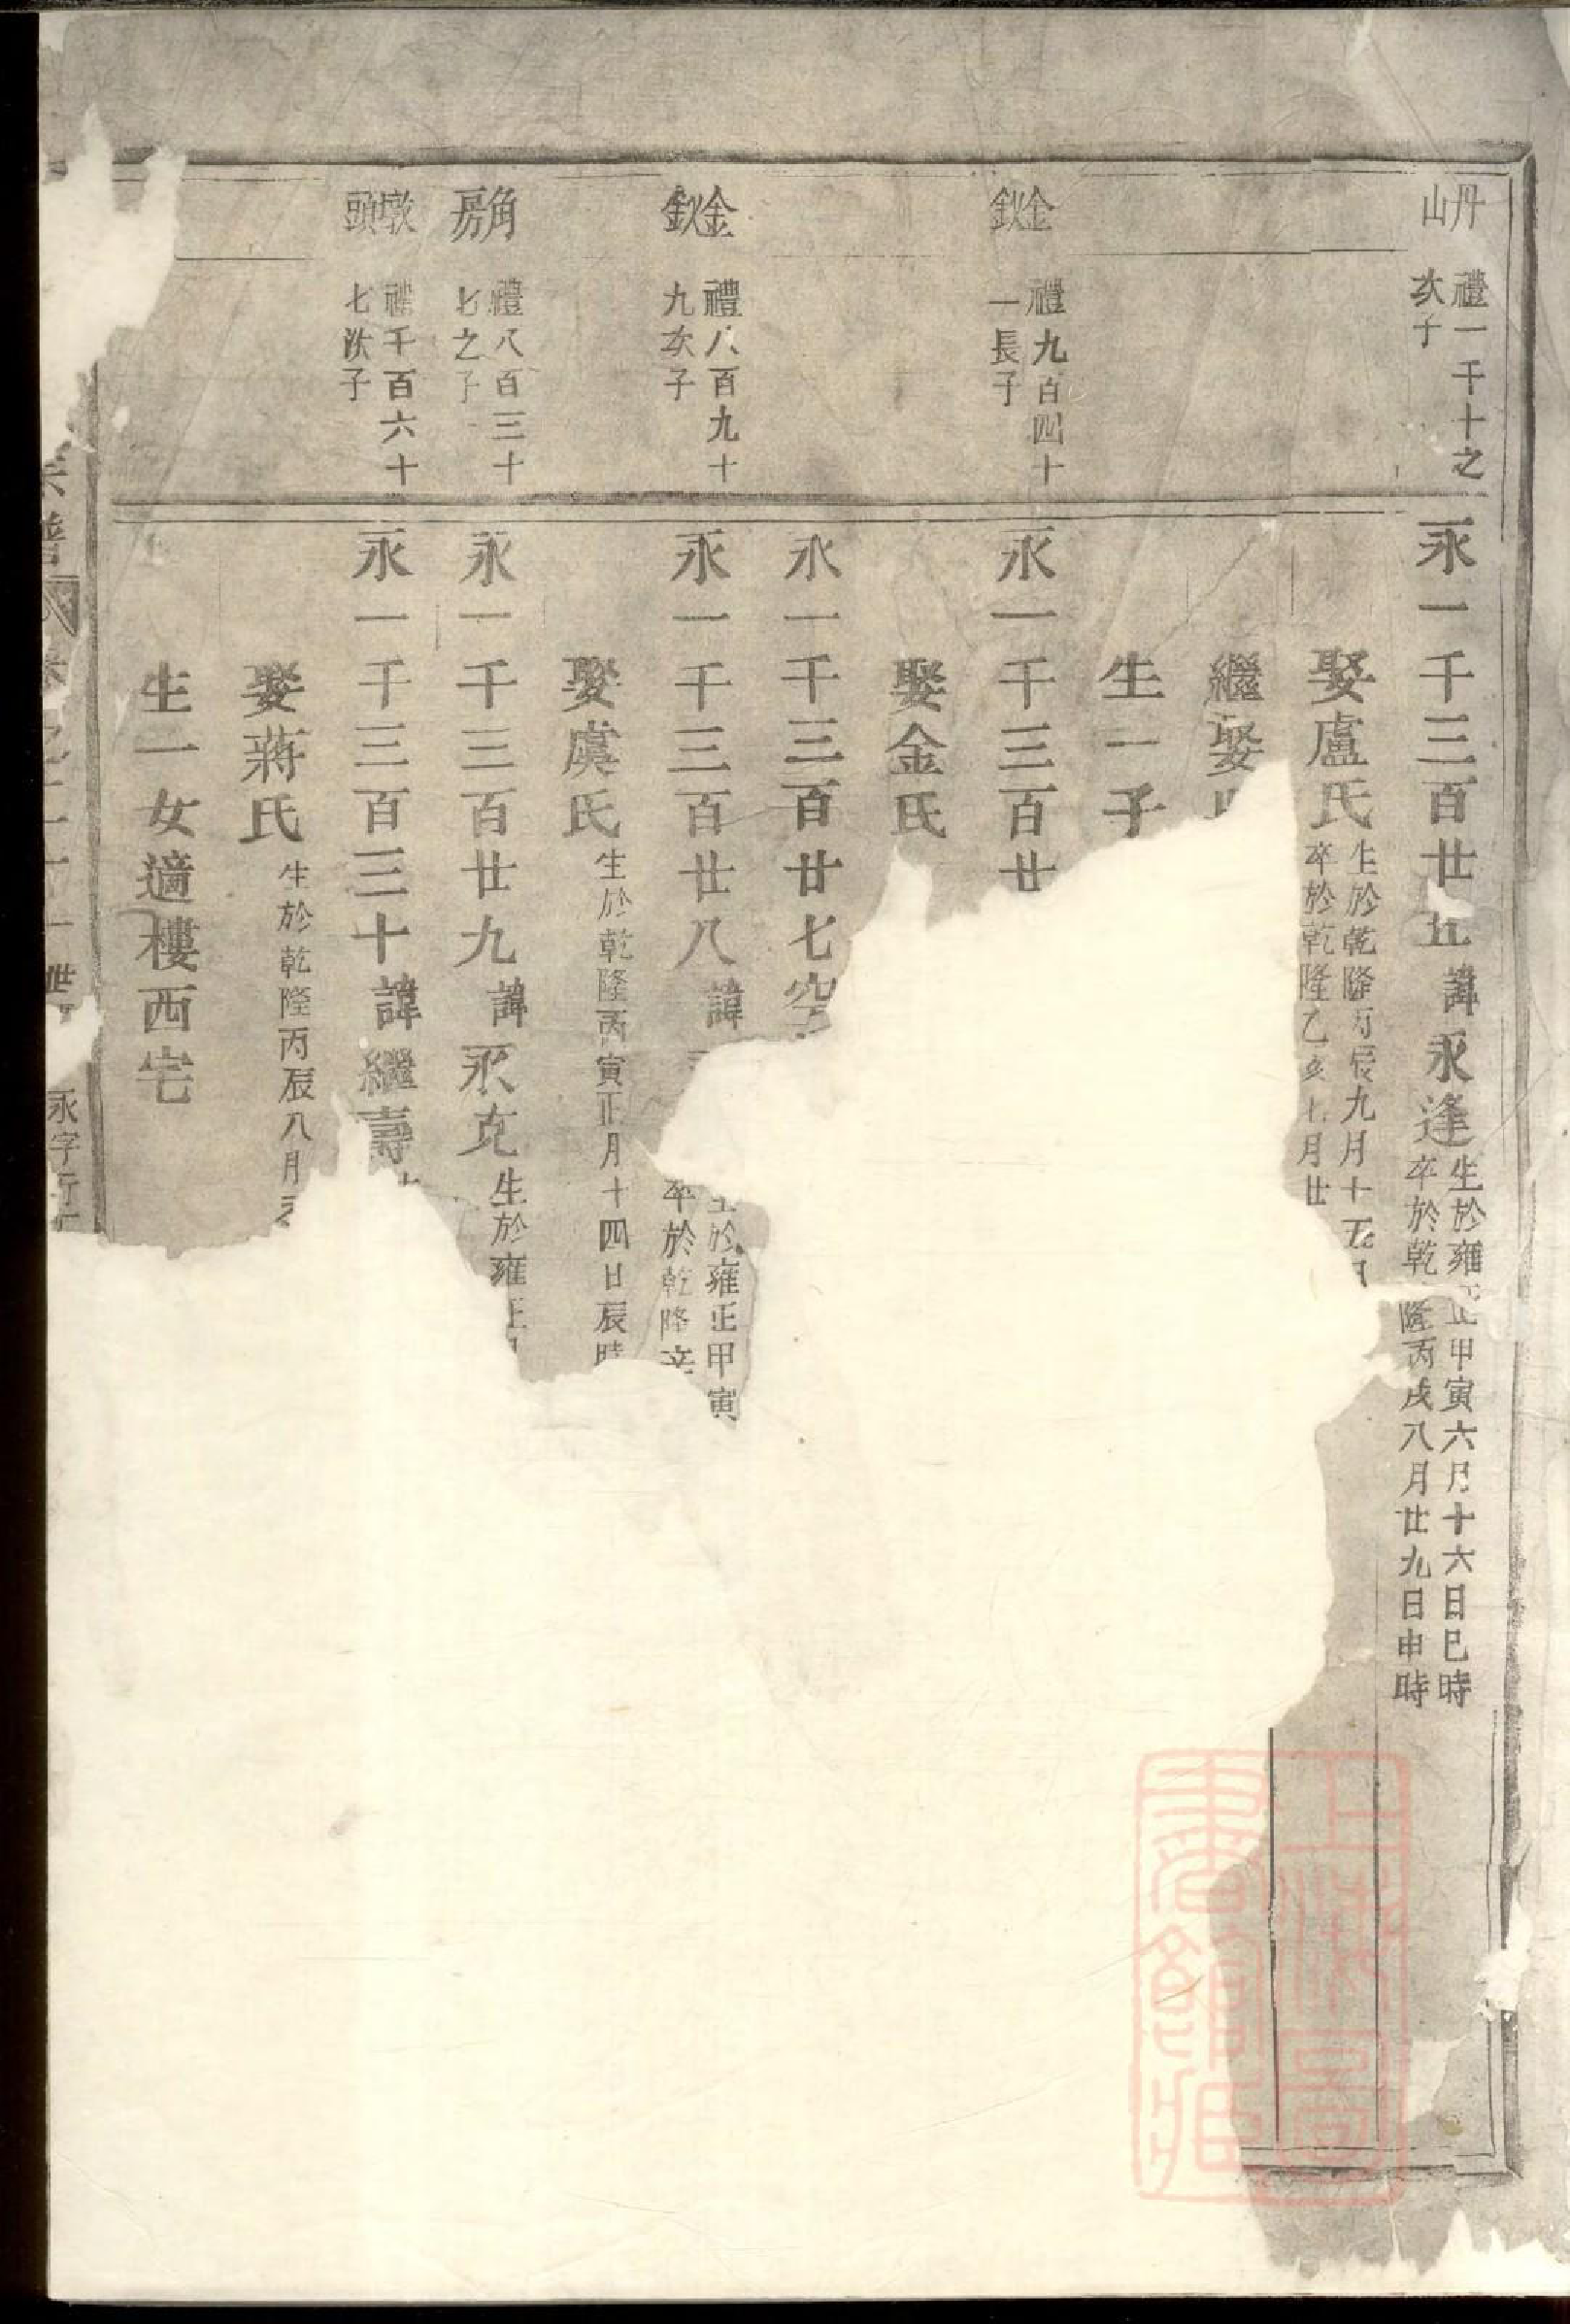 丹山
禮一千十之次子
永一千三百廿五 諱永逢 生於雍正甲寅六月十六日巳時
卒於乾隆丙戌八月廿九日申時
娶盧氏 生於乾隆丙辰九月十五日
卒於乾隆乙亥十月廿
繼娶
生一子
金釱
禮九百四十一長子
永一千三百廿
娶金氏
永一千三百廿七空
金釱
禮八百九十九次子
永一千三百廿八 諱
生於雍正甲寅
卒於乾隆辛
娶虞氏 生於乾隆丙寅正月十四日辰時
角房
禮八百三十七之子
永一千三百廿九 諱永克 生於雍正
墩頭
禮千百六十七次子
永一千三百三十 諱繼壽
娶蔣氏 生於乾隆丙辰八月
生一女適樓西宅
宗譜
世
永字行
上海圖書館藏